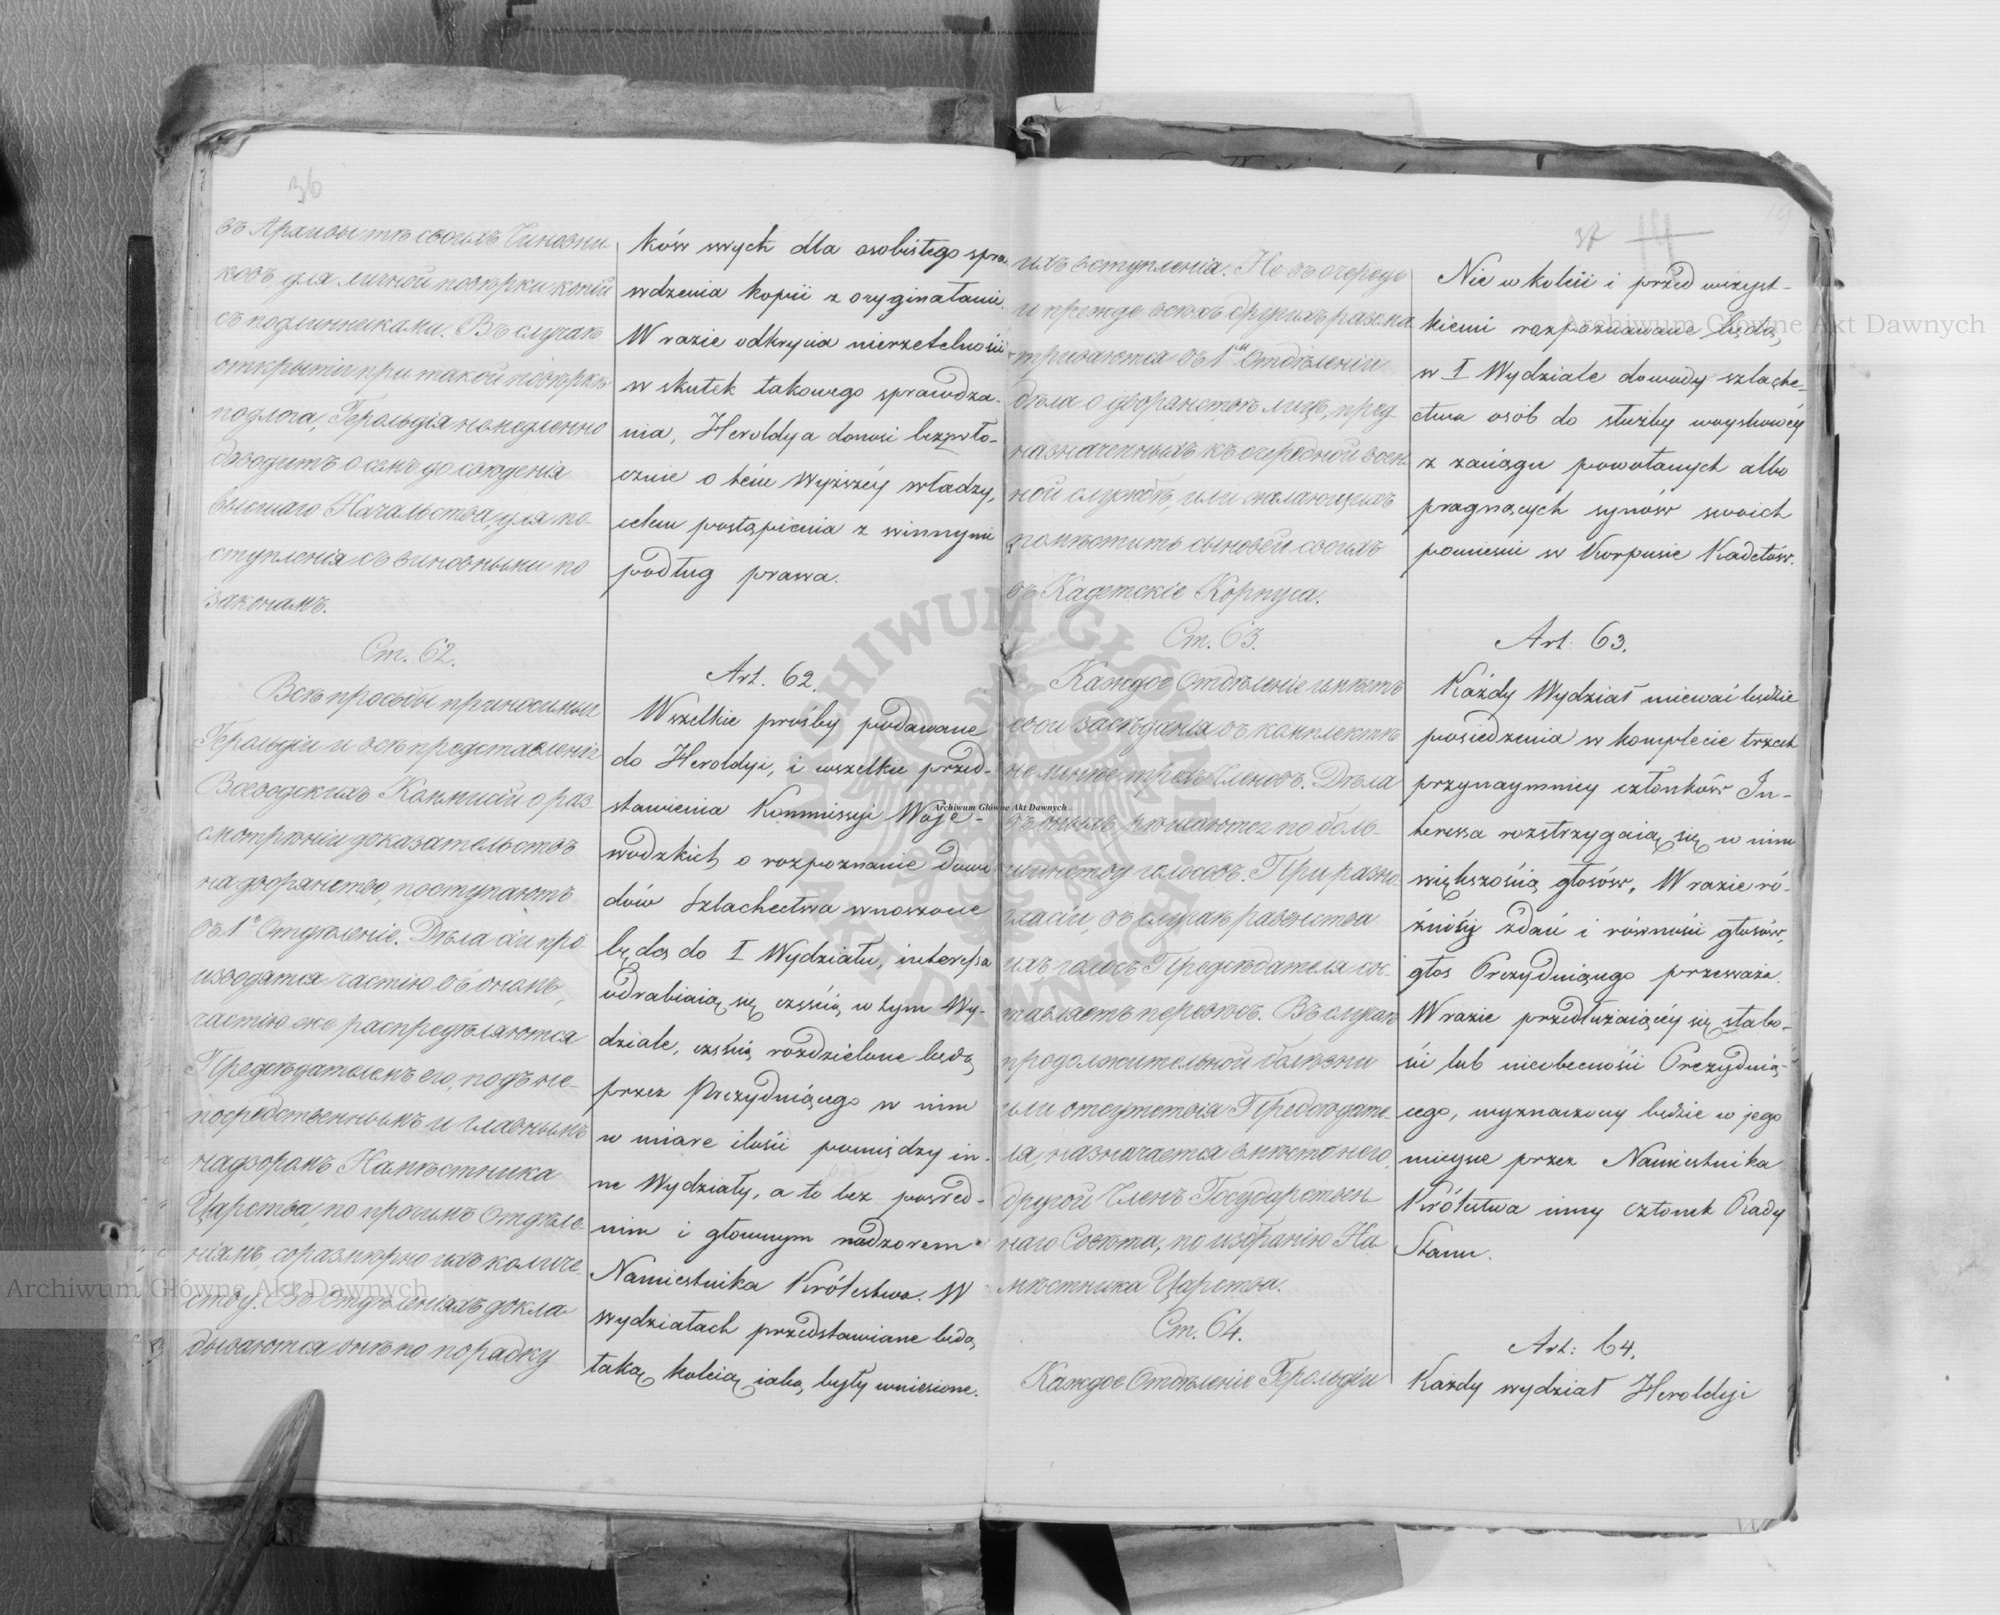 36
въ Архивы тѣ своихъ Чиновни
ковъ для личной повѣрки копій
съ подлинниками. Въ случаѣ
открытія при такой повѣркѣ
подлога, Герольдія немедленно
доводитъ о семъ до свѣденія
высшаго Начальства, для по-
ступленія съ виновными по
законамъ.
Ст. 62.
Всѣ просьбы приносимыя
Герольдіи и всѣ представленія
Воеводскихъ Коммисій о раз-
смотреніи доказательствъ
на дворянство, поступаютъ
въ 1е Отдѣленіе. Дѣла сіи про
изводятся частію въ ономъ,
частію же распредѣляются
Предсѣдателемъ его, подъ не-
посредственнымъ и главнымъ
надзоромъ Намѣстника
Царства, по прочимъ Отдѣле-
ніямъ, соразмѣрно ихъ количе-
ству. Въ Отдѣленіяхъ докла
дываются онѣ по порядку
ków swych dla osobistego spra
wdzenia kopii z oryginałami.
W razie odkrycia nierzetelności
w skutek takowego sprawdza-
nia, Heroldya donosi bezzwło-
cznie o tém Wyższéy władzy,
celem postąpienia z winnymi
podług prawa.
Art. 62.
Wszelkie prośby podawane
do Heroldyi, i wszelkie przed-
stawienia Kommissyi Woje-
wodzkich o rozpoznanie dowo
dów Szlachectwa wnoszone
będą do I Wydziału, interessa
odrabiaią się częścią w tym Wy-
dziale, częścią rozdzielone będą
przez Prezyduiącego w nim
w miarę ilości pomiędzy in-
ne Wydziały, a to bez pośred-
nim i głownym nadzorem
Namiestnika Królestwa. W
wydziałach przedstawiane będą
taką koleią iaką były wniesione.
37 19
ихъ вступленія. Не въ очередь
и прежде всѣхъ другихъ разсма
триваются въ 1мъ Отдѣленіи
дѣла о дворянствѣ лицъ, пред
назначенныхъ къ очередной воен
ной службѣ, или желающихъ
помѣстить сыновей своихъ
въ Кадетскіе Корпуса.
Ст. 63.
Каждое Отдѣленіе имѣетъ
свои засѣданія въ комплектѣ
не менѣе трехъ Членовъ. Дѣла
въ оныхъ рѣшаются по боль-
шинству голосовъ. При разно-
гласіи, въ случаѣ равенства
ихъ голосъ Предсѣдателя сос-
тавляетъ перевѣсъ. Въ случаѣ
продолжительной болѣзни
или отсутствія Предсѣдате-
ля, назначается вмѣсто него,
другой Членъ Государствен
наго Совѣта, по избранію На
мѣстника Царства.
Ст. 64.
Каждое Отдѣленіе Герольдіи
Nie w kolei i przed wszyst-
kiemi rozpoznawane będą,
w I Wydziale dowody szlache-
ctwa osób do służby woyskowéy
z zaciągu powołanych albo
pragnących synów swoich
pomieścić w Korpusie Kadetów.
Art: 63.
Każdy Wydział miewać będzie
posiedzenia w komplecie trzech
przynaymniey członków In-
teressa rozstrzygaią się w nim
większością głosów. W razie ró-
żności zdań i równości głosów,
głos Prezyduiącego przeważa.
W razie przedłużaiącéy się słabo-
ści lub nieobecności Prezyduią-
cego, wyznaczony będzie w jego
mieysce przez Namiestnika
Królestwa inny członek Rady
Stanu.
Art: 64.
Każdy wydział Heroldyi
Archiwum Główne Akt Dawnych
Archiwum Główne Akt Dawnych
Archiwum Główne Akt Dawnych
ARCHIWUM GŁÓWNE AKT DAWNYCH